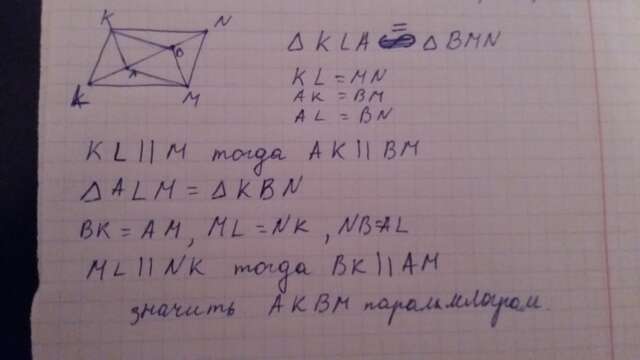 K N
B
A
L M
Δ KLA = Δ BMN
KL = MN
AK = BM
AL = BN
KL || M тогда AK || BM
Δ ALM = Δ KBN
BK = AM, ML = NK, NB=AL
ML || NK тогда BK || AM
значить AKBM